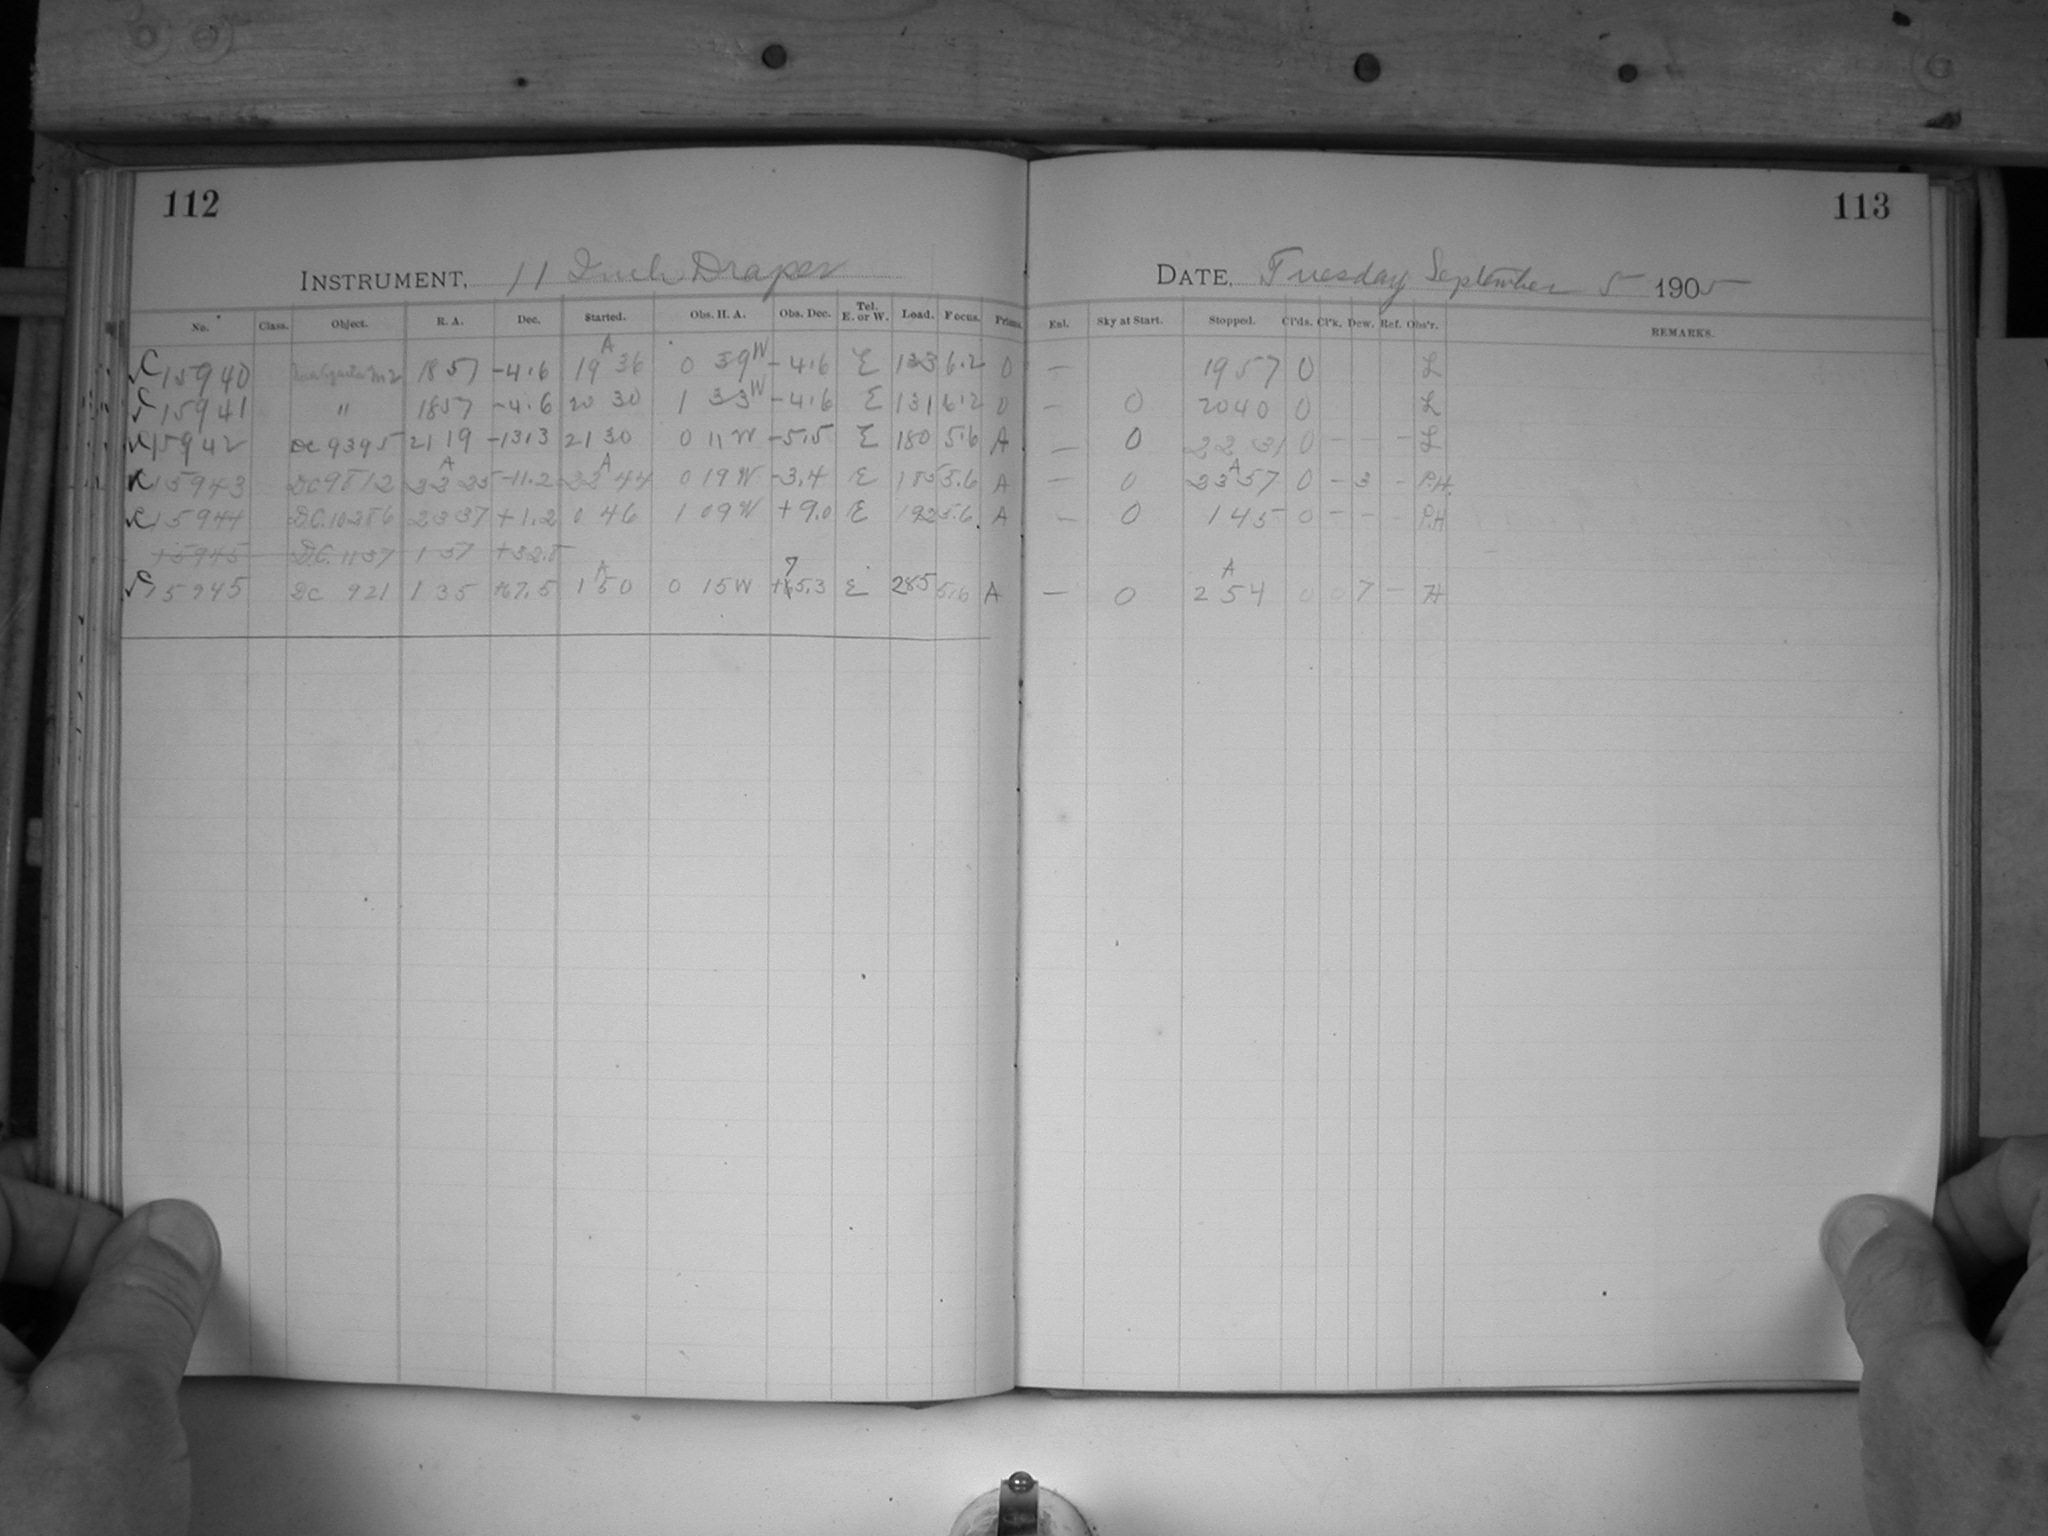 112
113
INSTRUMENT, 11 Inch Draper
DATE, Tuesday September 5 1905
No. Class. Object. R. A. Dec. Started. Obs. H. A. Obs. Dec. Tel. E. or W. Load. Focus. Prisms. Enl. Sky at Start. Stopped. Cl'ds. Cl'k. Dew. Ref. Obs'r. REMARKS.
C15940 No. 2 18 57 -4.6 19 A 36 0 39 W -4.6 E 133 6.2 0 — 19 57 0 L
C15941 " 18 57 -4.6 20 30 1 33 W -4.6 E 131 6.2 0 — 0 20 40 0 L
C15942 DC 9395 21 19 -13.3 21 30 0 11 W -5.5 E 180 5.6 A — 0 22 31 0 - - - L
C15943 DC 9812 22 A 25 -11.2 22 A 44 0 19 W -3.4 E 185 5.6 A — 0 23 A 57 0 - 3 - P.H.
C15944 D.C. 10286 23 37 +1.2 0 46 1 09 W +9.0 E 192 5.6 A — 0 1 45 0 - - - P.H
15945 D.C. 1137 1 37 +32.8
C15945 DC 921 1 35 +67.5 1 A 50 0 15 W +75.3 E 285 5.6 A — 0 2 A 54 0 0 7 - H